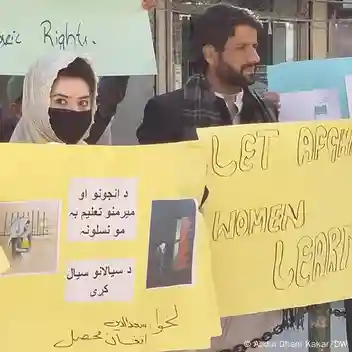 asic Rights.
د انجونو او
میرمنو تعلیم به
مو نسلونه
د سیالانو سیال
کړي
لخوا سعدالدین
افغان محصل
LET AFGHA
WOMEN
LEARN
© Abdul Ghani Kakar/DW